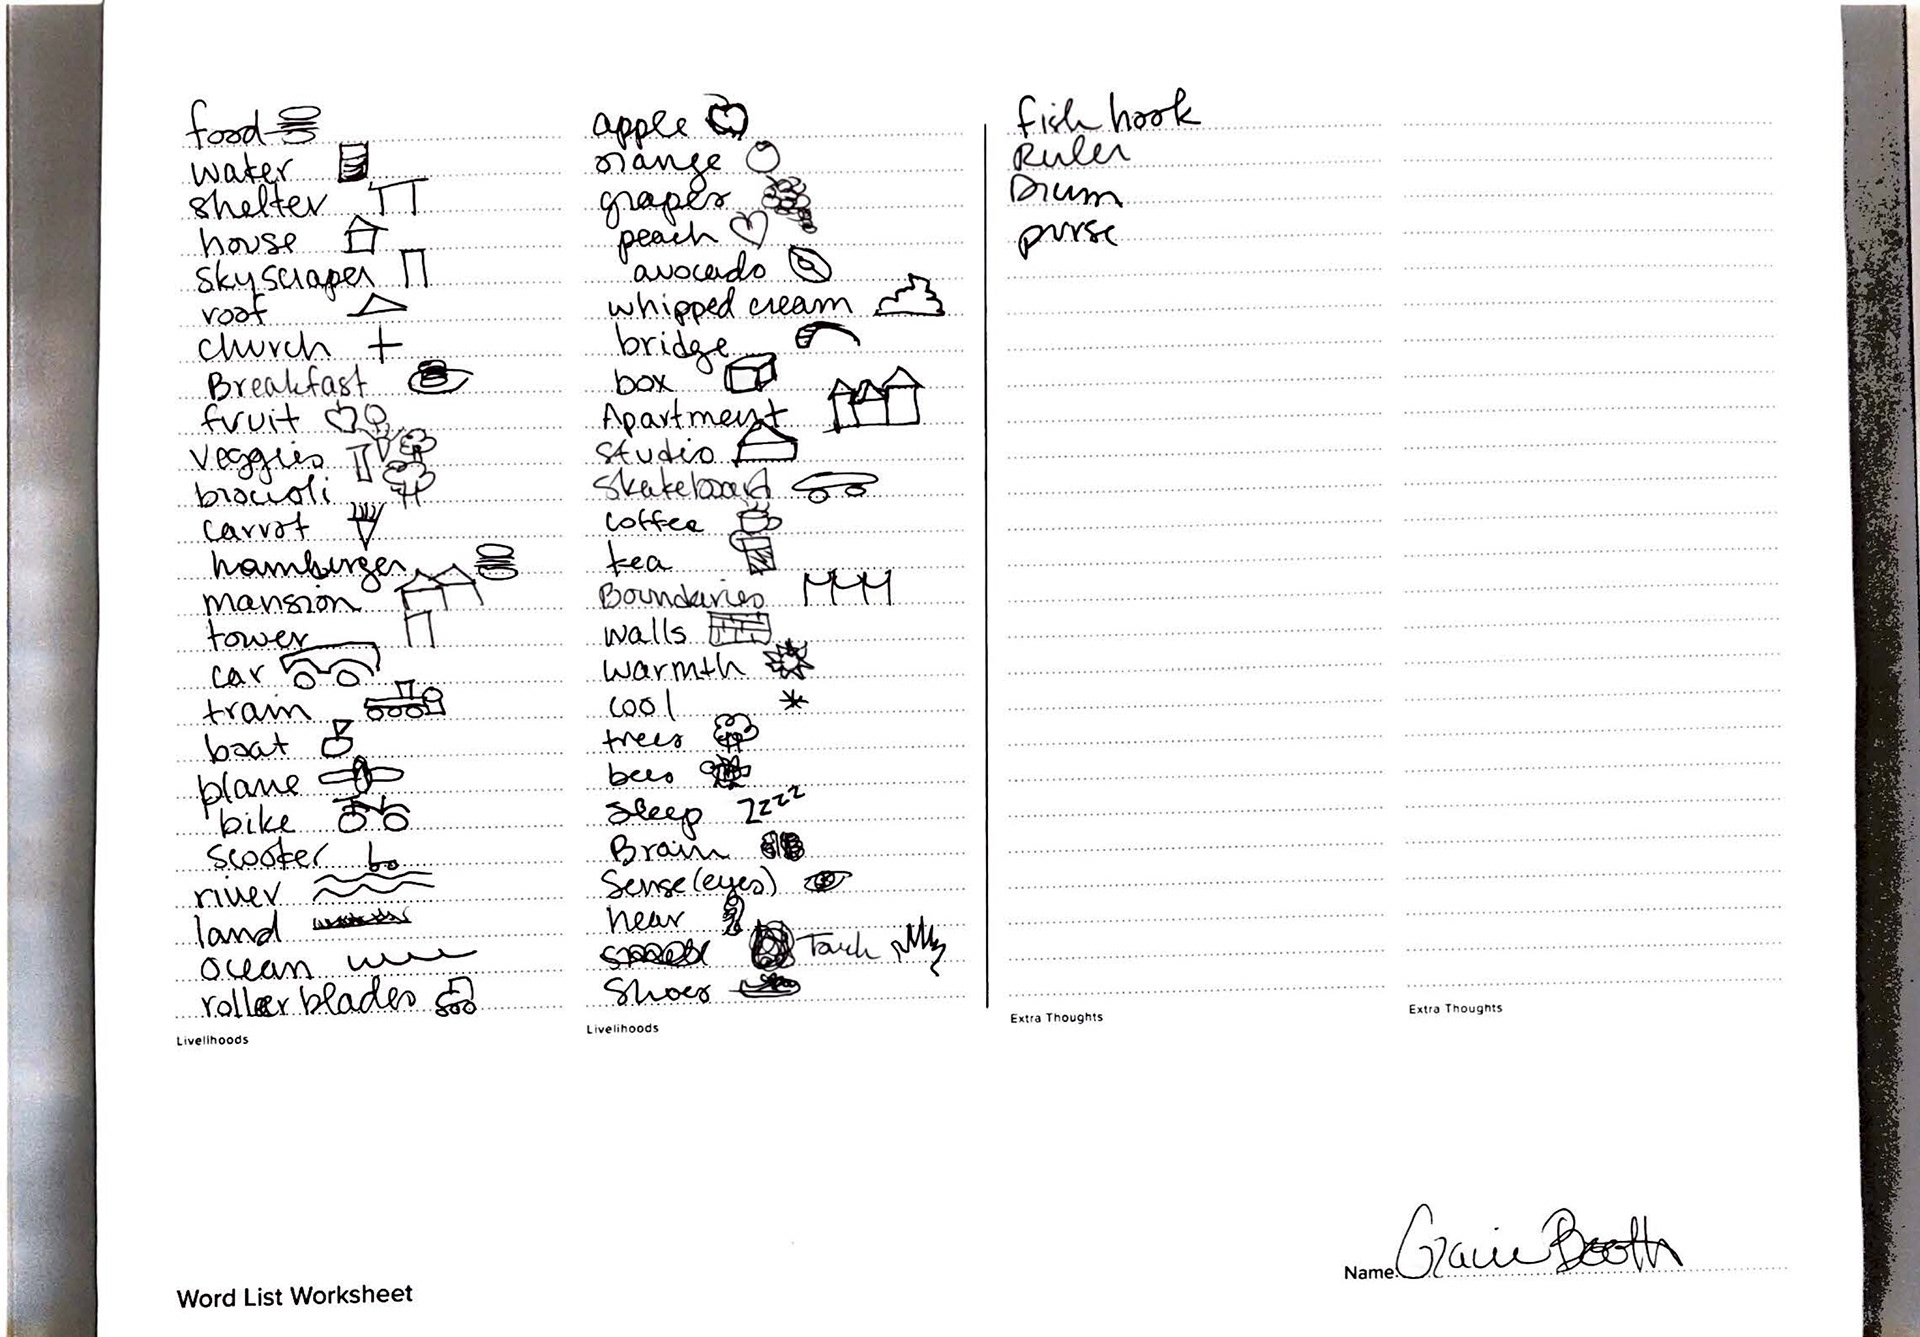 food
water
shelter
house
skyscraper
roof
church
Breakfast
fruit
veggies
broccoli
carrot
hamburger
mansion
tower
car
train
boat
plane
bike
scooter
river
land
ocean
roller blades
Livelihoods
apple
orange
grapes
peach
avocado
whipped cream
bridge
box
Apartment
Studio
Skateboard
coffee
tea
Boundaries
walls
warmth
cool
trees
bees
Sleep
zzzz
Brain
Sense (eyes)
hear
Touch
Shoes
Livelihoods
fish hook
Ruler
Drum
purse
Extra Thoughts
Extra Thoughts
Name: Gracie Booth
Word List Worksheet